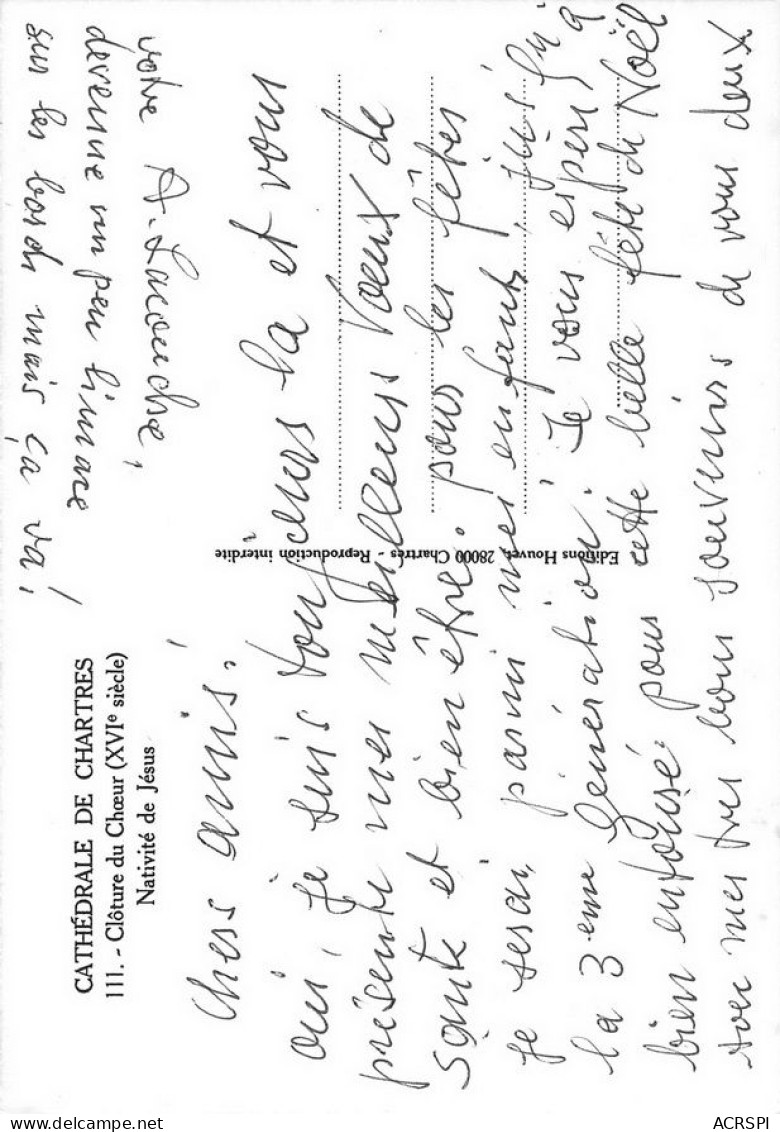 CATHÉDRALE DE CHARTRES
111. - Clôture du Chœur (XVIe siècle)
Nativité de Jésus
Editions Houvet, 28000 Chartres - Reproduction interdite
Chers amis!
oui, je suis toujours la et vous
présente mes meilleurs Vœux de
Santé et bien être. pour les fêtes
je serai, parmi mes enfants, jusqu'
la 3eme Génération! Je vous espère
bien entouré pour cette belle fête de Noël
avec mes très bons souvenirs de vous deux
votre A.
devenue un peu limace
sur les bords mais ça va!
ACRSPI
delcampe.net